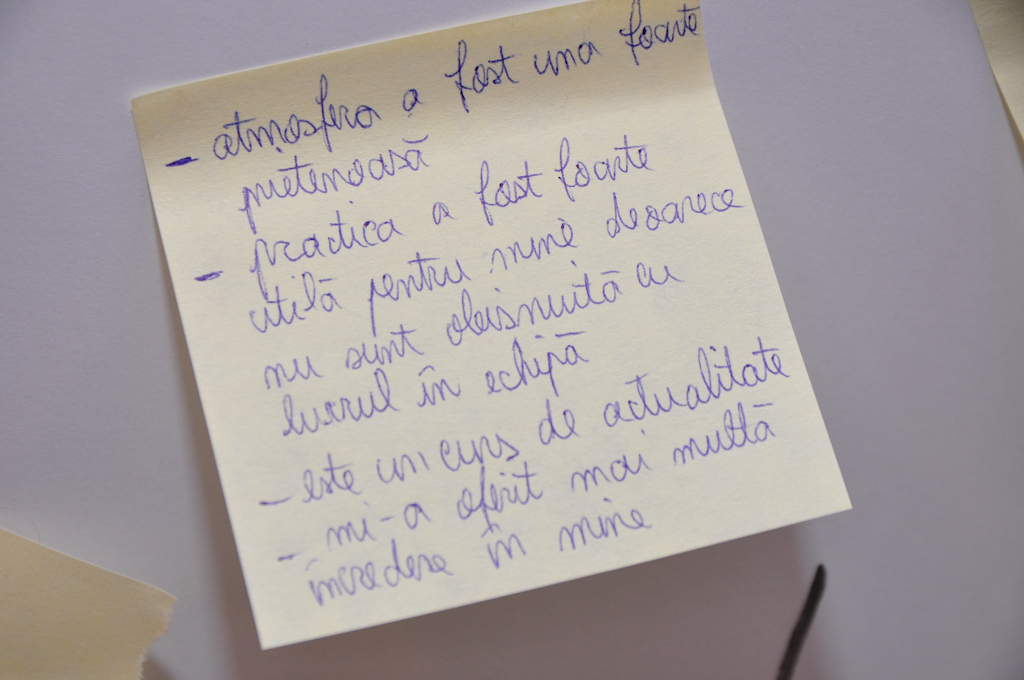 - atmosfera a fost una foarte
prietenoasă
- practica a fost foarte
utilă pentru mine deoarece
nu sunt obișnuită cu
lucrul în echipă
- este un curs de actualitate
- mi-a oferit mai multă
încredere în mine